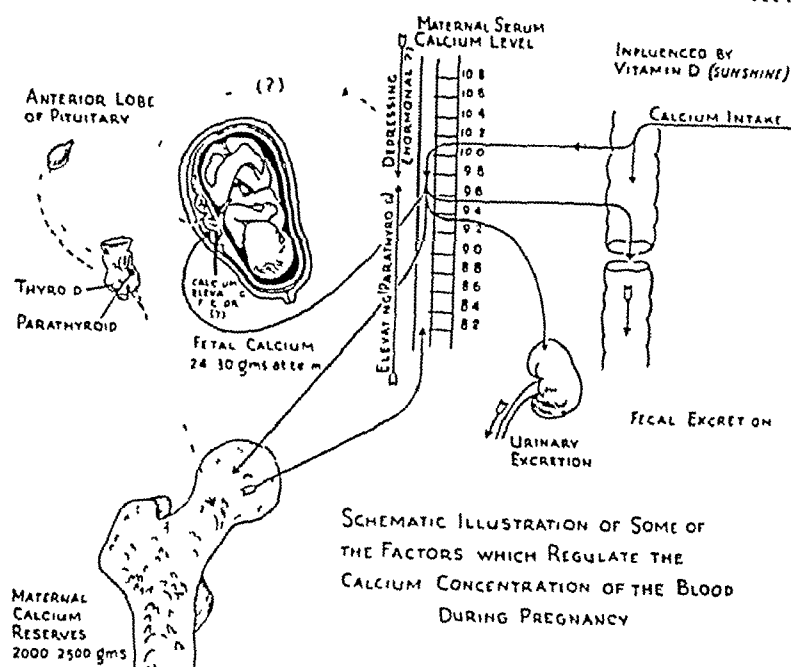 MATERNAL SERUM
CALCIUM LEVEL
INFLUENCED BY
VITAMIN D (SUNSHINE)
CALCIUM INTAKE
(?)
ANTERIOR LOBE
OF PITUITARY
DEPRESSING
(HORMONAL ?)
10 8
10 6
10 4
10 2
10 0
9 8
9 6
9 4
9 2
9 0
8 8
8 6
8 4
8 2
ELEVATING (PARATHYROID)
THYROID
PARATHYROID
CALCIUM
(?)
FETAL CALCIUM
24 30 gms at term
URINARY
EXCRETION
FECAL EXCRETION
SCHEMATIC ILLUSTRATION OF SOME OF
THE FACTORS WHICH REGULATE THE
CALCIUM CONCENTRATION OF THE BLOOD
DURING PREGNANCY
MATERNAL
CALCIUM
RESERVES
2000 2500 gms